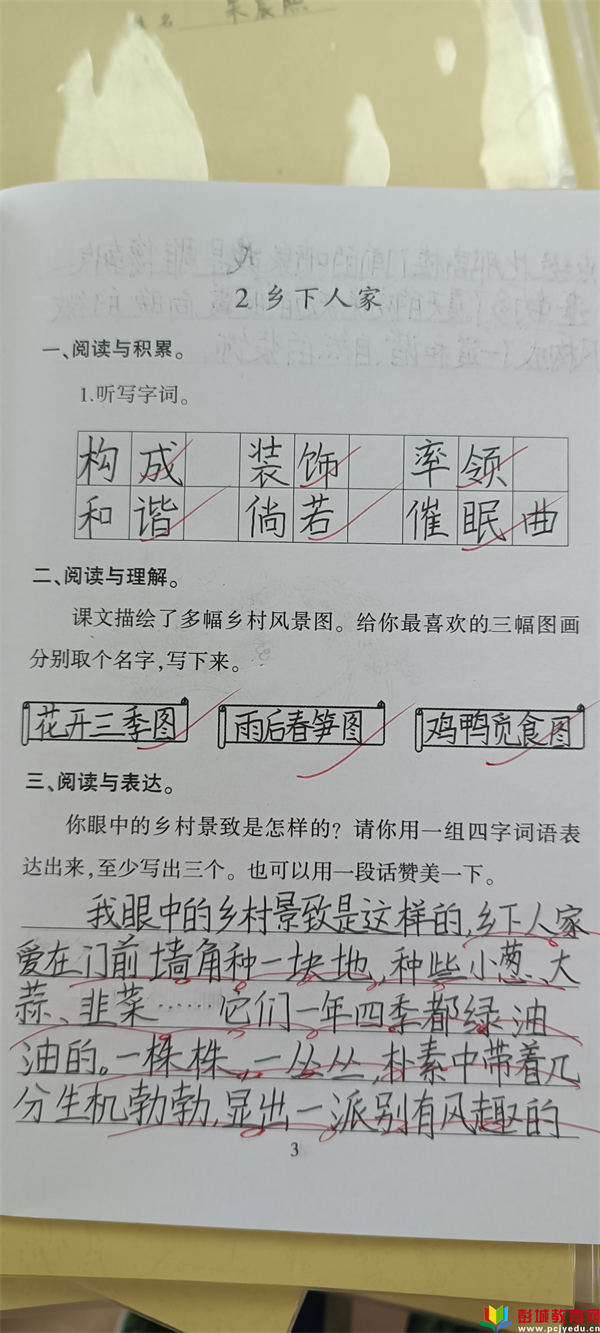 2 乡下人家
一、阅读与积累。
1.听写字词。
构成 装饰 率领
和谐 倘若 催眠曲
二、阅读与理解。
课文描绘了多幅乡村风景图。给你最喜欢的三幅图画
分别取个名字,写下来。
花开三季图 雨后春笋图 鸡鸭觅食图
三、阅读与表达。
你眼中的乡村景致是怎样的？请你用一组四字词语表
达出来,至少写出三个。也可以用一段话赞美一下。
我眼中的乡村景致是这样的,乡下人家
爱在门前墙角种一块地,种些小葱、大
蒜、韭菜……它们一年四季都绿油
油的。一株株,一丛丛,朴素中带着几
分生机勃勃,显出一派别有风趣的
3
彭城教育网
www.pcjyedu.cn